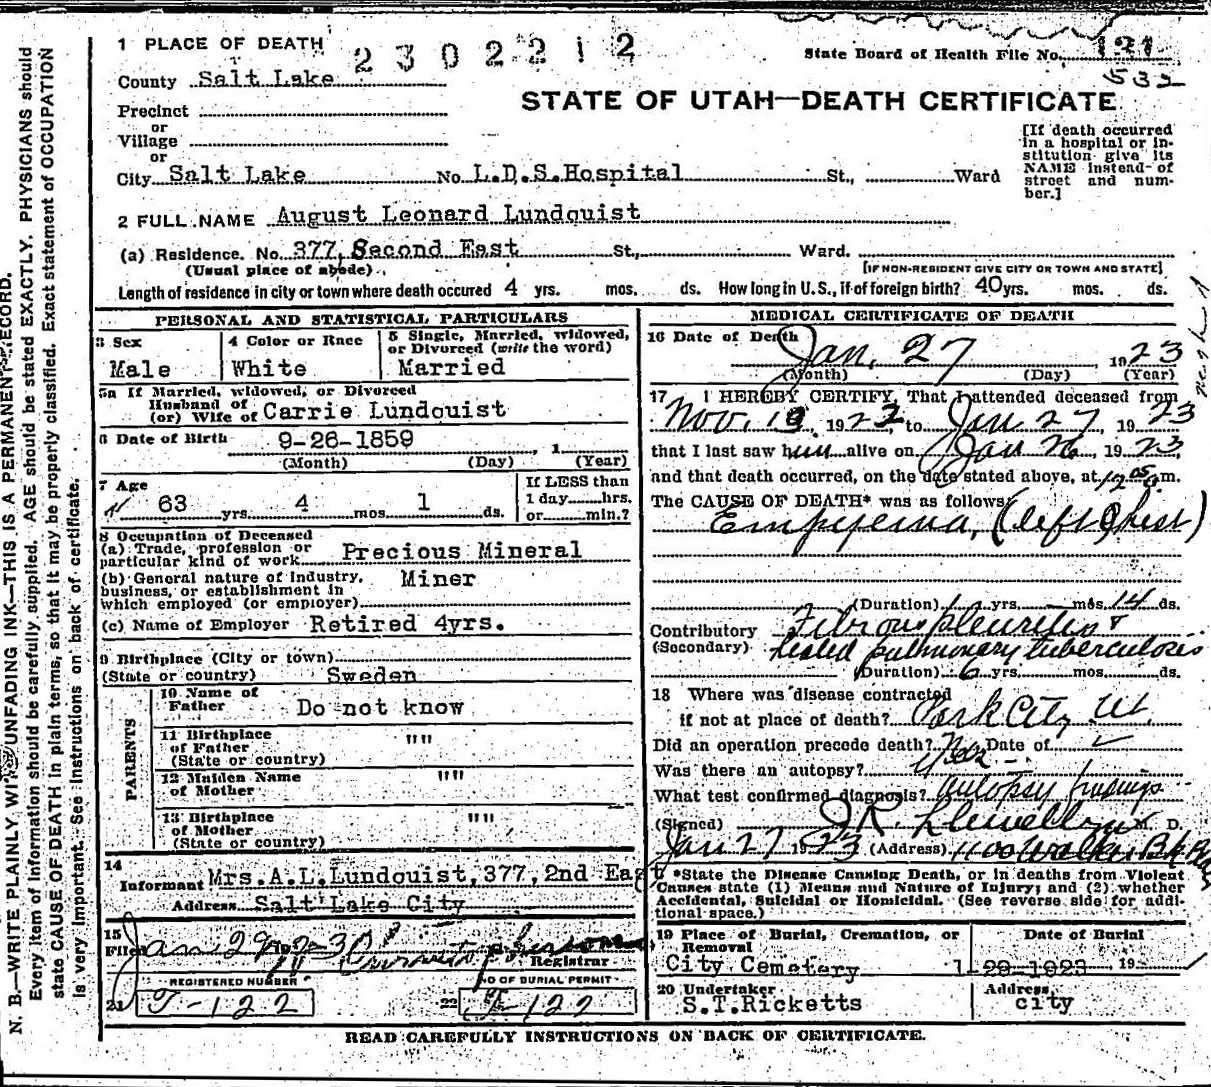 1 PLACE OF DEATH
2302212
State Board of Health File No. 121
532
County Salt Lake
STATE OF UTAH—DEATH CERTIFICATE
Precinct
or
Village
or
City Salt Lake No. L.D.S. Hospital St., Ward
[If death occurred
in a hospital or in-
stitution give its
NAME instead of
street and num-
ber.]
2 FULL NAME August Leonard Lundquist
(a) Residence. No. 377, Second East St., Ward.
(Usual place of abode)
[IF NON-RESIDENT GIVE CITY OR TOWN AND STATE]
Length of residence in city or town where death occured 4 yrs. mos. ds. How long in U.S., if of foreign birth? 40 yrs. mos. ds.
PERSONAL AND STATISTICAL PARTICULARS
3 Sex
Male
4 Color or Race
White
5 Single, Married, widowed,
or Divorced (write the word)
Married
5a If Married, widowed, or Divorced
Husband of
(or) Wife of Carrie Lundquist
6 Date of Birth 9-26-1859, 1
(Month) (Day) (Year)
7 Age
63 yrs. 4 mos. 1 ds.
If LESS than
1 day hrs.
or min.?
8 Occupation of Deceased
(a) Trade, profession or
particular kind of work Precious Mineral
(b) General nature of industry,
business, or establishment in
which employed (or employer)
Miner
(c) Name of Employer Retired 4yrs.
9 Birthplace (City or town)
(State or country) Sweden
PARENTS
10 Name of
Father Do not know
11 Birthplace
of Father
(State or country)
""
12 Maiden Name
of Mother
""
13 Birthplace
of Mother
(State or country)
""
14
Informant Mrs. A.L. Lundquist, 377, 2nd East
Address Salt Lake City
15
Filed Jan 29 1923
Registrar
REGISTERED NUMBER
NO OF BURIAL PERMIT
21 T-122 22 T-122
MEDICAL CERTIFICATE OF DEATH
16 Date of Death Jan. 27 1923
(Month) (Day) (Year)
17 I HEREBY CERTIFY, That I attended deceased from
Nov. 1922, to Jan 27, 1923
that I last saw him alive on Jan 26, 1923,
and that death occurred, on the date stated above, at 12 05 a.m.
The CAUSE OF DEATH* was as follows:
Empyema, (left Chest)
(Duration) yrs. mos. 14 ds.
Contributory Fibrous pleuritis &
(Secondary) healed pulmonary tuberculosis
(Duration) 6 yrs. mos. ds.
18 Where was disease contracted
if not at place of death? Park City Ut.
Did an operation precede death? Date of
Was there an autopsy? Yes
What test confirmed diagnosis? autopsy findings
(Signed) J.R. Llewellyn M. D.
Jan 27 1923 (Address) 1100 Walker Bk Bldg
*State the Disease Causing Death, or in deaths from Violent
Causes state (1) Means and Nature of Injury; and (2) whether
Accidental, Suicidal or Homicidal. (See reverse side for addi-
tional space.)
19 Place of Burial, Cremation, or
Removal
City Cemetery
Date of Burial
1-29-1923, 19
20 Undertaker
S.T.Ricketts
Address
city
READ CAREFULLY INSTRUCTIONS ON BACK OF CERTIFICATE.
N. B.—WRITE PLAINLY WITH UNFADING INK—THIS IS A PERMANENT RECORD.
Every item of information should be carefully supplied. AGE should be stated EXACTLY. PHYSICIANS should
state CAUSE OF DEATH in plain terms, so that it may be properly classified. Exact statement of OCCUPATION
is very important. See instructions on back of certificate.